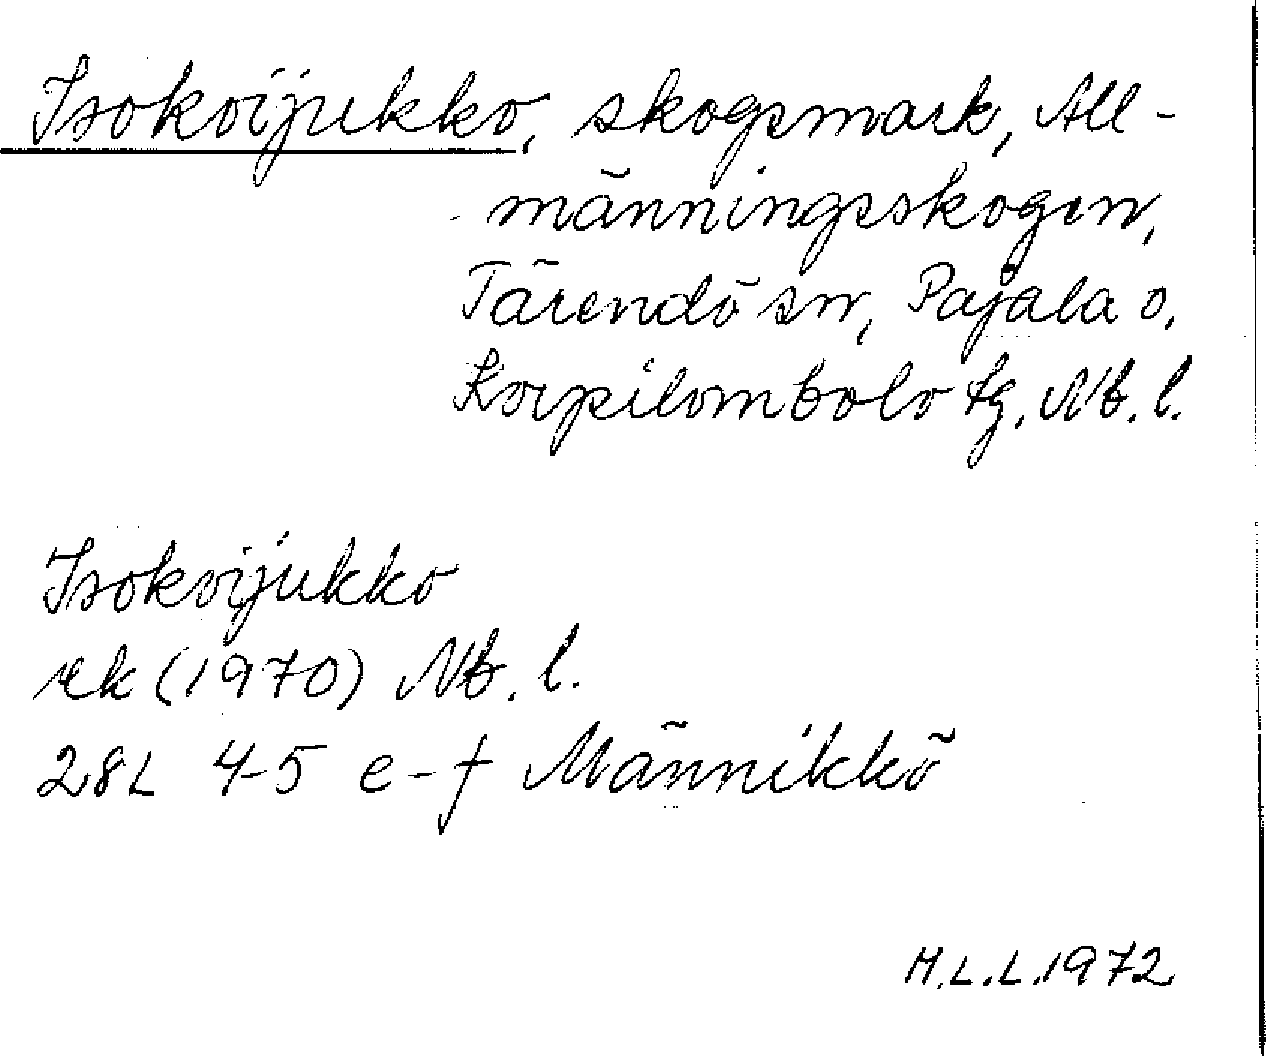 Isokoijukko, skogsmark, All-
männingsskogen,
Tärendö sn, Pajala o.
Korpilombolo tg, Nb. l.
Isokoijukko
rek (1970) Nb. l.
28L 4-5 e-f Männikkö
M.L.L. 1972